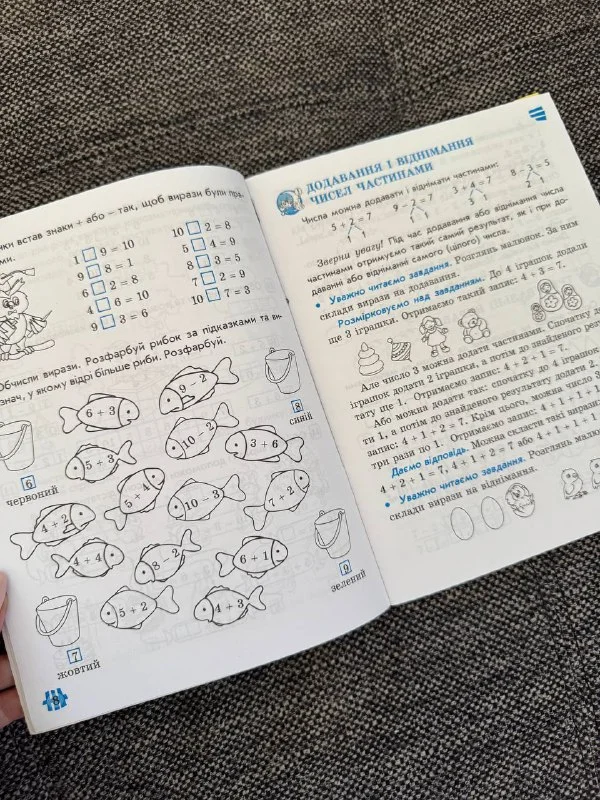 встав знаки + або – так, щоб вирази були
1 □ 9 = 10
9 □ 8 = 1
6 □ 2 = 8
4 □ 6 = 10
9 □ 3 = 6
10 □ 2 = 8
5 □ 4 = 9
8 □ 3 = 5
7 □ 2 = 9
10 □ 7 = 3
Обчисли вирази. Розфарбуй рибок за підказками та ви-
знач, у якому відрі більше риби. Розфарбуй.
9 – 2
6 + 3
8
синій
10 – 2
3 + 6
5 + 3
6
червоний
5 + 4
10 – 3
7 + 2
4 + 2
4 + 4
8 – 2
6 + 1
9
зелений
5 + 2
4 + 3
7
жовтий
8
ДОДАВАННЯ І ВІДНІМАННЯ
ЧИСЕЛ ЧАСТИНАМИ
Числа можна додавати і віднімати частинами:
5 + 2 = 7 9 – 2 = 7 3 + 4 = 7 8 – 3 = 5
Зверни увагу! Під час додавання або віднімання числа
частинами отримуємо такий самий результат, як і при до-
даванні або відніманні самого (цілого) числа.
• Уважно читаємо завдання. Розглянь малюнок. За ним
склади вирази на додавання.
Розмірковуємо над завданням. До 4 іграшок додали
ще 3 іграшки. Отримаємо такий запис: 4 + 3 = 7.
Але число 3 можна додати частинами. Спочатку до
іграшок додати 2 іграшки, а потім до знайденого
тату ще 1. Отримаємо запис: 4 + 2 + 1 = 7.
Або можна додати так: спочатку до 4 іграшок
ти 1, а потім до знайденого результату додати 2.
запис: 4 + 1 + 2 = 7. Крім цього, можна число 3
три рази по 1. Отримаємо запис: 4 + 1 + 1 + 1
Даємо відповідь. Можна скласти такі вирази
4 + 2 + 1 = 7, 4 + 1 + 2 = 7 або 4 + 1 + 1 + 1
• Уважно читаємо завдання. Розглянь
склади вирази на віднімання.